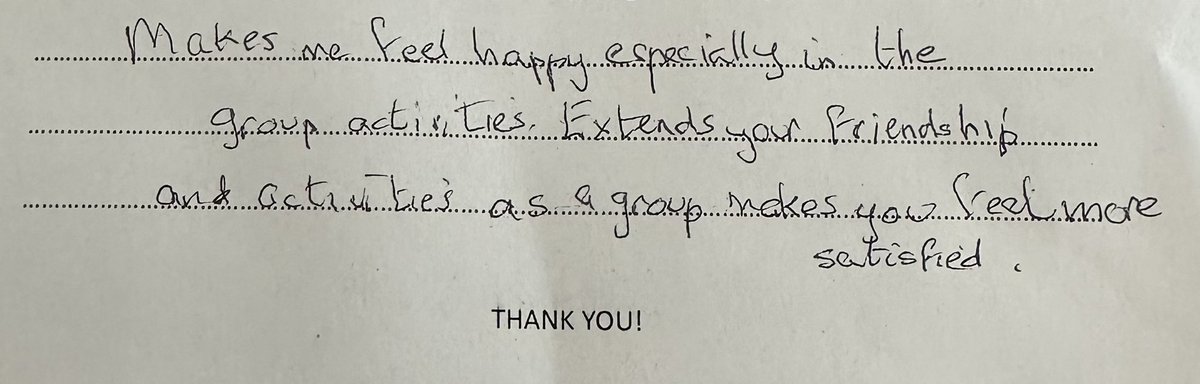 Makes me feel happy especially in the
group activities. Extends your friendship
and activities as a group makes you feel more
satisfied.
THANK YOU!